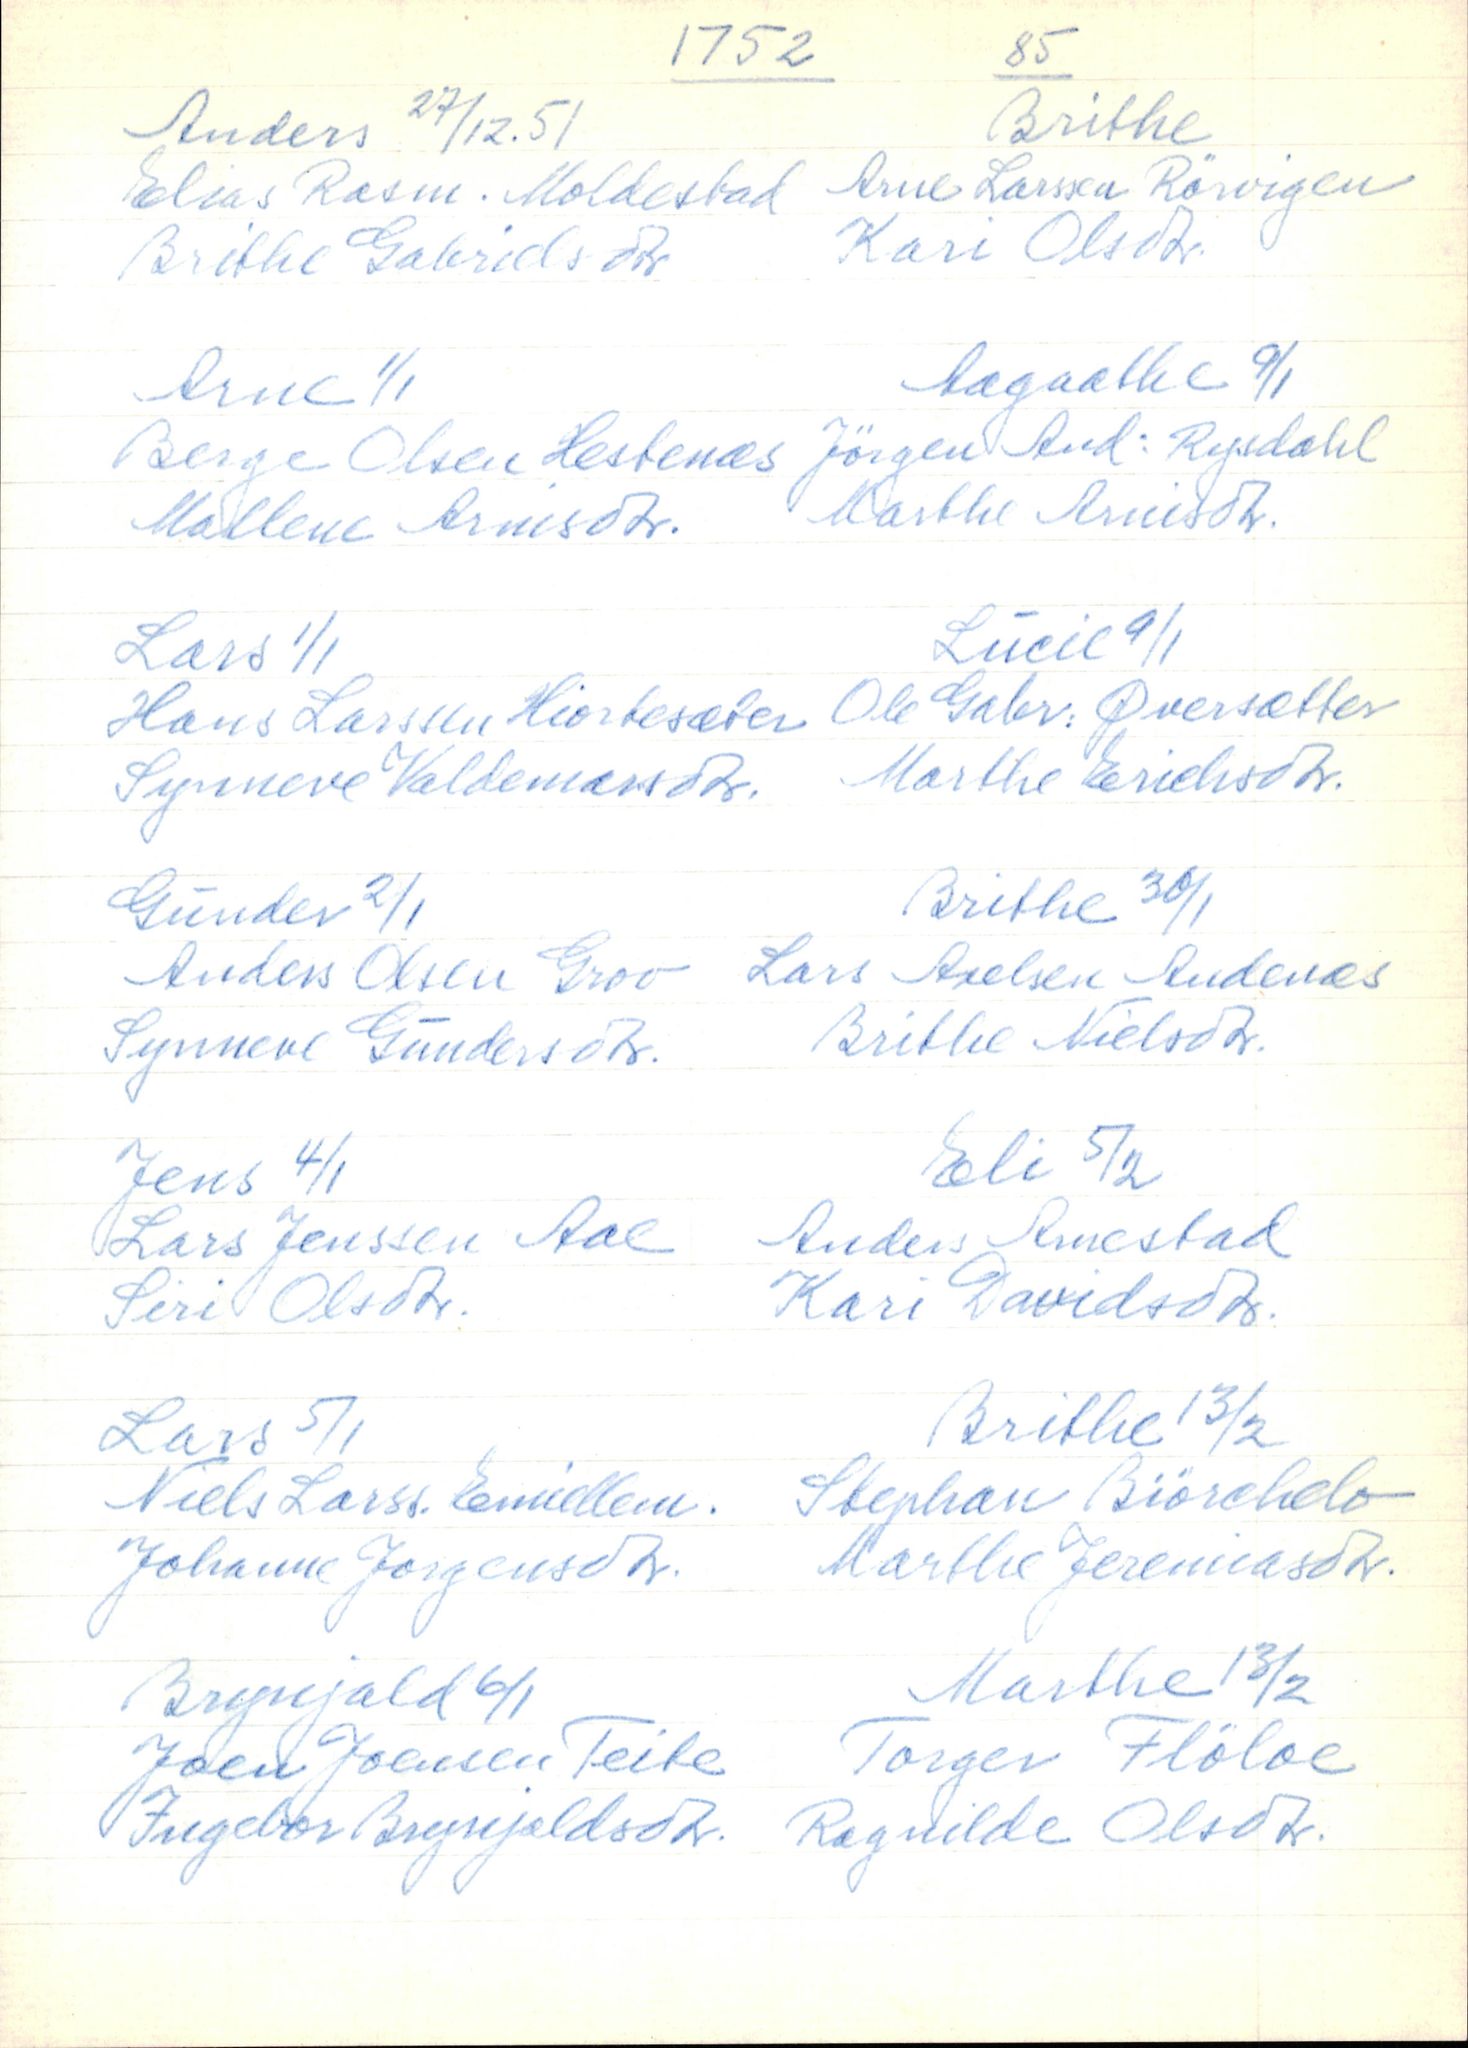 1752
85
Anders 27/12.51
Elias Rasm. Moldestad
Brithe Gabrielsdtr
Arne 1/1
Berge Olsen Hestenæs
Mallene Arnisdtr.
Lars 1/1
Hans Larssen Hiortesæter
Synneve Valdemarsdtr.
Gunder 2/1
Anders Olsen Grov
Synneve Gundersdtr.
Jens 4/1
Lars Jenssen Aae
Siri Olsdtr.
Lars 5/1
Niels Larss. Emidlem.
Johanne Jørgensdtr.
Brynjald 6/1
Joen Joensen Teite
Ingebor Brynjaldsdtr.
Brithe
Arne Larssen Rörvigen
Kari Olsdtr.
Aagaathe 9/1
Jörgen And: Rysdahl
Marthe Arnisdtr.
Lucie 9/1
Ole Gabr: Øversætter
Marthe Erichsdtr.
Brithe 30/1
Lars Axelsen Andenæs
Brithe Nielsdtr.
Eli 5/2
Anders Arnestad
Kari Davidsdtr.
Brithe 13/2
Stephan Biörchelo
Marthe Jeremiasdtr.
Marthe 13/2
Torger Flöloe
Ragnilde Olsdtr.